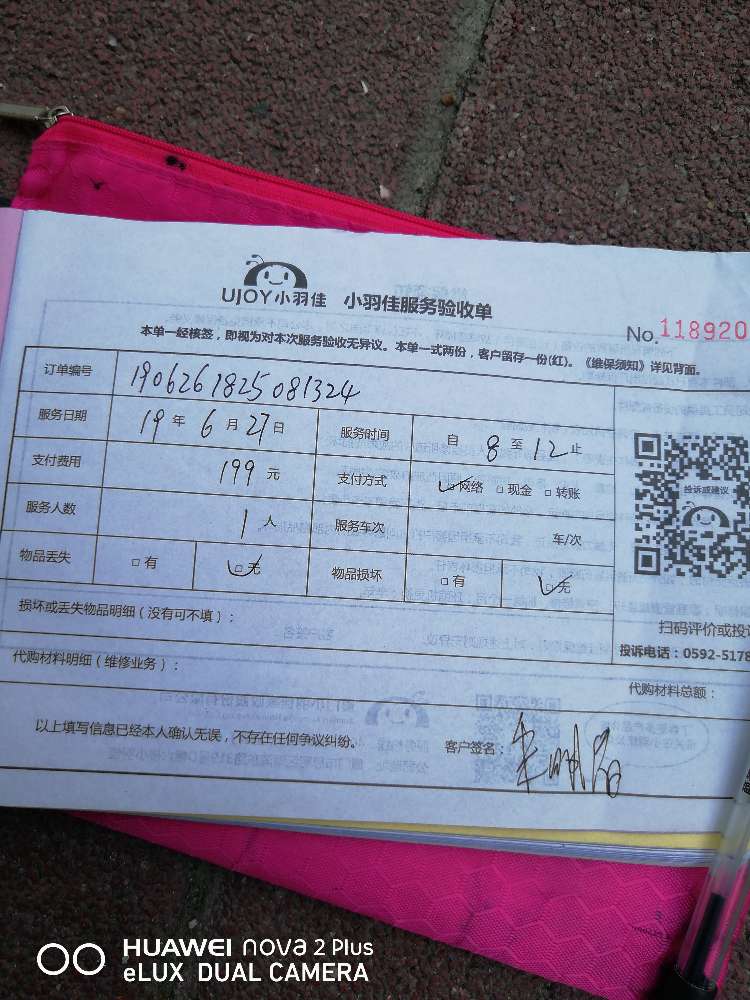 UJOY小羽佳 小羽佳服务验收单
No. 118920
本单一经核签，即视为对本次服务验收无异议。本单一式两份，客户留存一份(红)。《维保须知》详见背面。
订单编号 1906261825081324
服务日期 19 年 6 月 27 日 服务时间 自 8 至 12 止
支付费用 199 元 支付方式 ☑网络 □现金 □转账
服务人数 1 人 服务车次 车/次
物品丢失 □有 ☑无 物品损坏 □有 ☑无
投诉或建议
损坏或丢失物品明细（没有可不填）：
扫码评价或投
投诉电话：0592-5178
代购材料明细（维修业务）：
代购材料总额：
以上填写信息已经本人确认无误，不存在任何争议纠纷。 客户签名：
HUAWEI nova 2 Plus
eLUX DUAL CAMERA